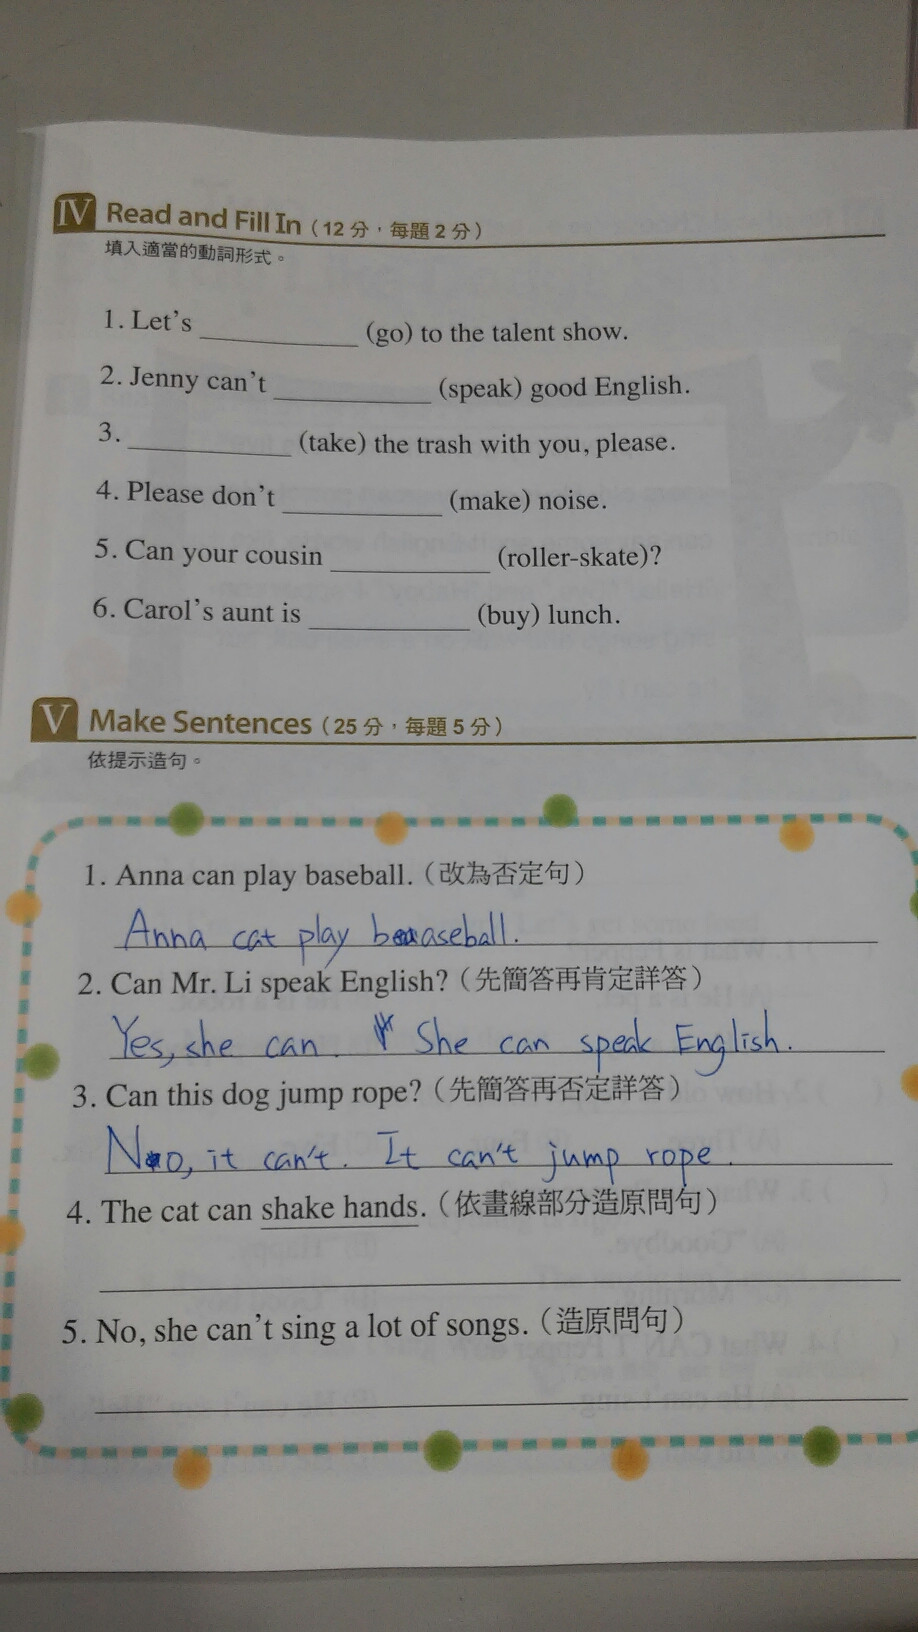 IV Read and Fill In（12 分，每題 2 分）
填入適當的動詞形式。
1. Let's __________ (go) to the talent show.
2. Jenny can't __________ (speak) good English.
3. __________ (take) the trash with you, please.
4. Please don't __________ (make) noise.
5. Can your cousin __________ (roller-skate)?
6. Carol's aunt is __________ (buy) lunch.
V Make Sentences（25 分，每題 5 分）
依提示造句。
1. Anna can play baseball.（改為否定句）
Anna cat play baseball.
2. Can Mr. Li speak English?（先簡答再肯定詳答）
Yes, she can. She can speak English.
3. Can this dog jump rope?（先簡答再否定詳答）
No, it can't. It can't jump rope.
4. The cat can shake hands.（依畫線部分造原問句）
5. No, she can't sing a lot of songs.（造原問句）